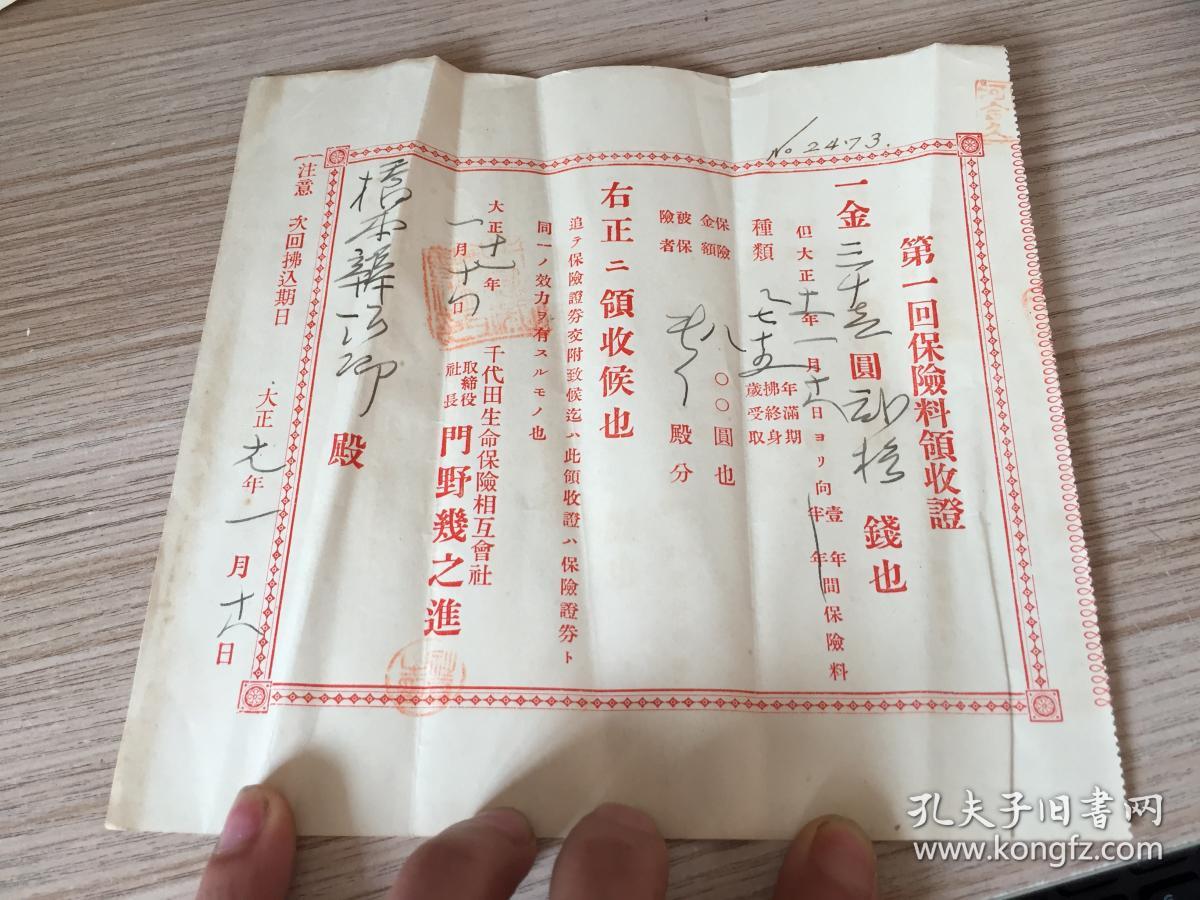 No 2473.
第一回保險料領收證
一金三十壱圓弐拾錢也
但大正十一年一月十六日ヨリ向壹年間保險料
半年
種類
年滿期
拂終身
歲受取
保險金額
八〇〇圓也
被保險者
殿分
右正ニ領收候也
追テ保險證劵交附致候迄ハ此領收證ハ保險證劵ト
同一ノ效力ヲ有スルモノ也
大正十一年一月
日
千代田生命保險相互會社
取締役社長 門野幾之進
橋本
殿
注意 次回拂込期日 大正
年一月十六日
孔夫子旧书网
www.kongfz.com